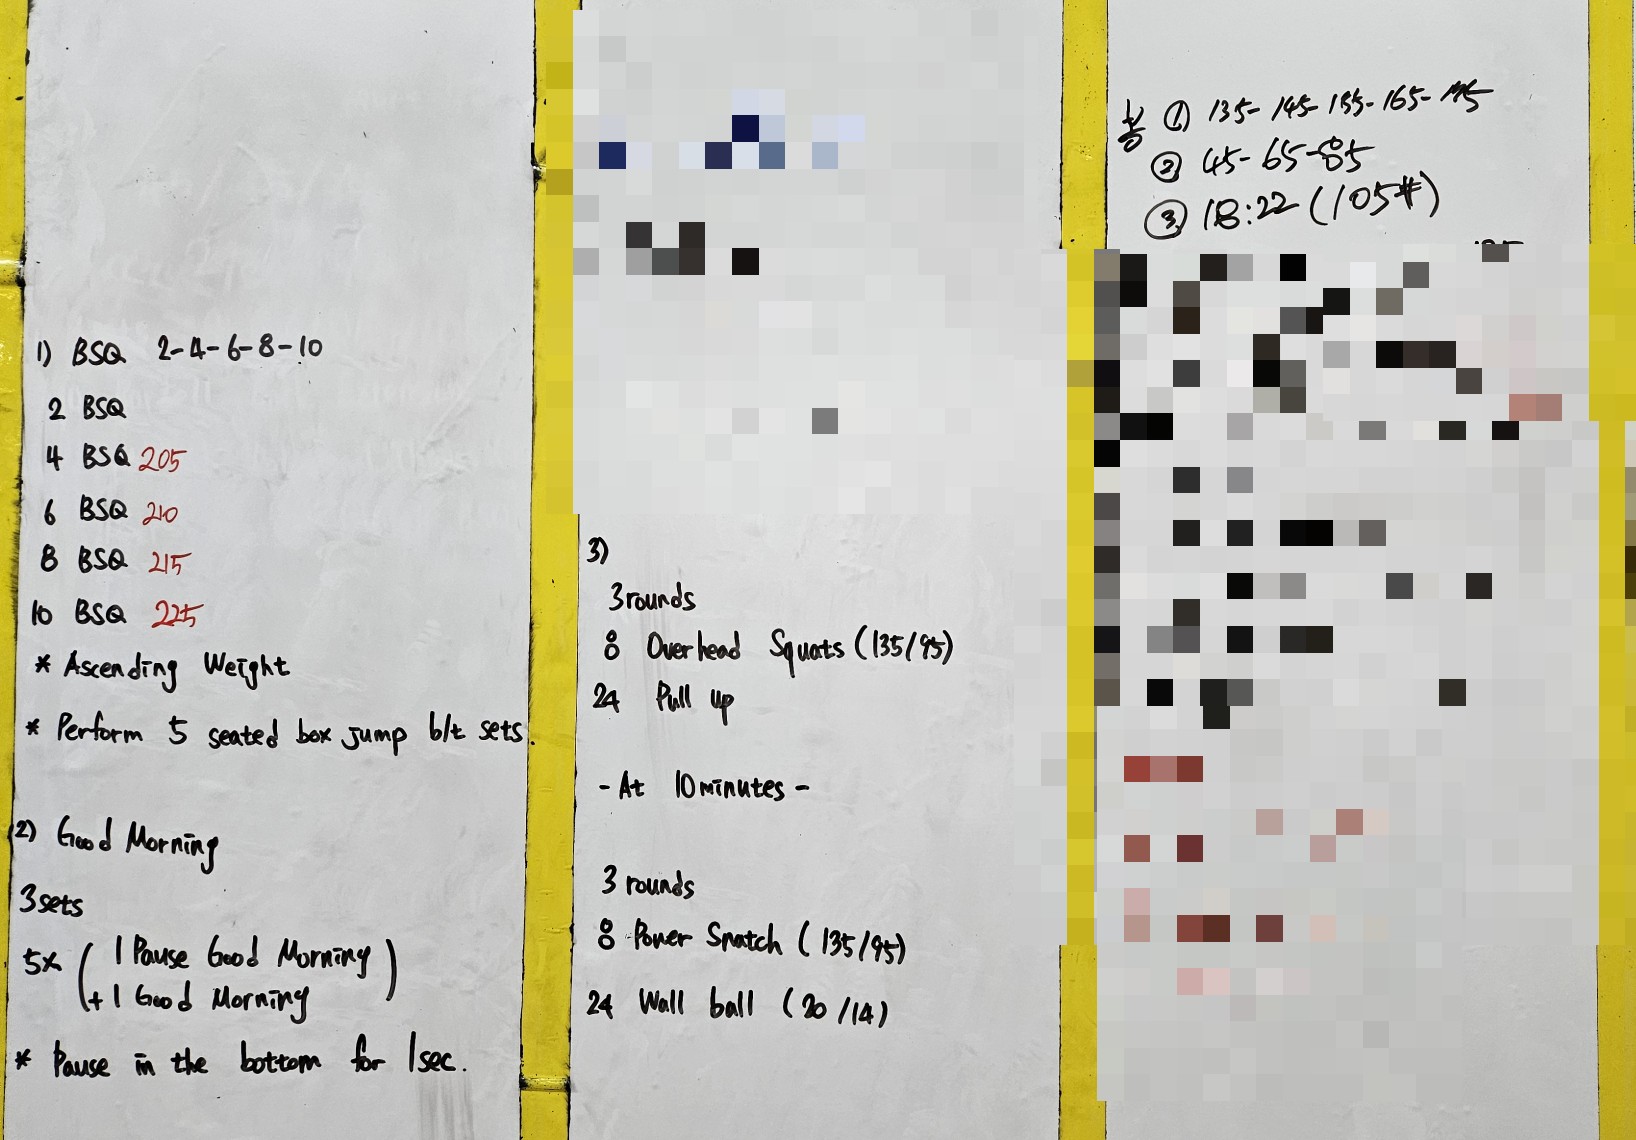 1) BSQ 2-4-6-8-10
2 BSQ
4 BSQ 205
6 BSQ 210
8 BSQ 215
10 BSQ 225
* Ascending Weight
* Perform 5 seated box jump b/t sets.
2) Good Morning
3sets
5x ( 1 Pause Good Morning
+ 1 Good Morning )
* Pause in the bottom for 1sec.
3)
3rounds
8 Overhead Squats (135/95)
24 Pull up
- At 10minutes -
3 rounds
8 Power Snatch (135/95)
24 Wall ball (20/14)
① 135-145-155-165-175
② 45-65-85
③ 18:22 (105#)